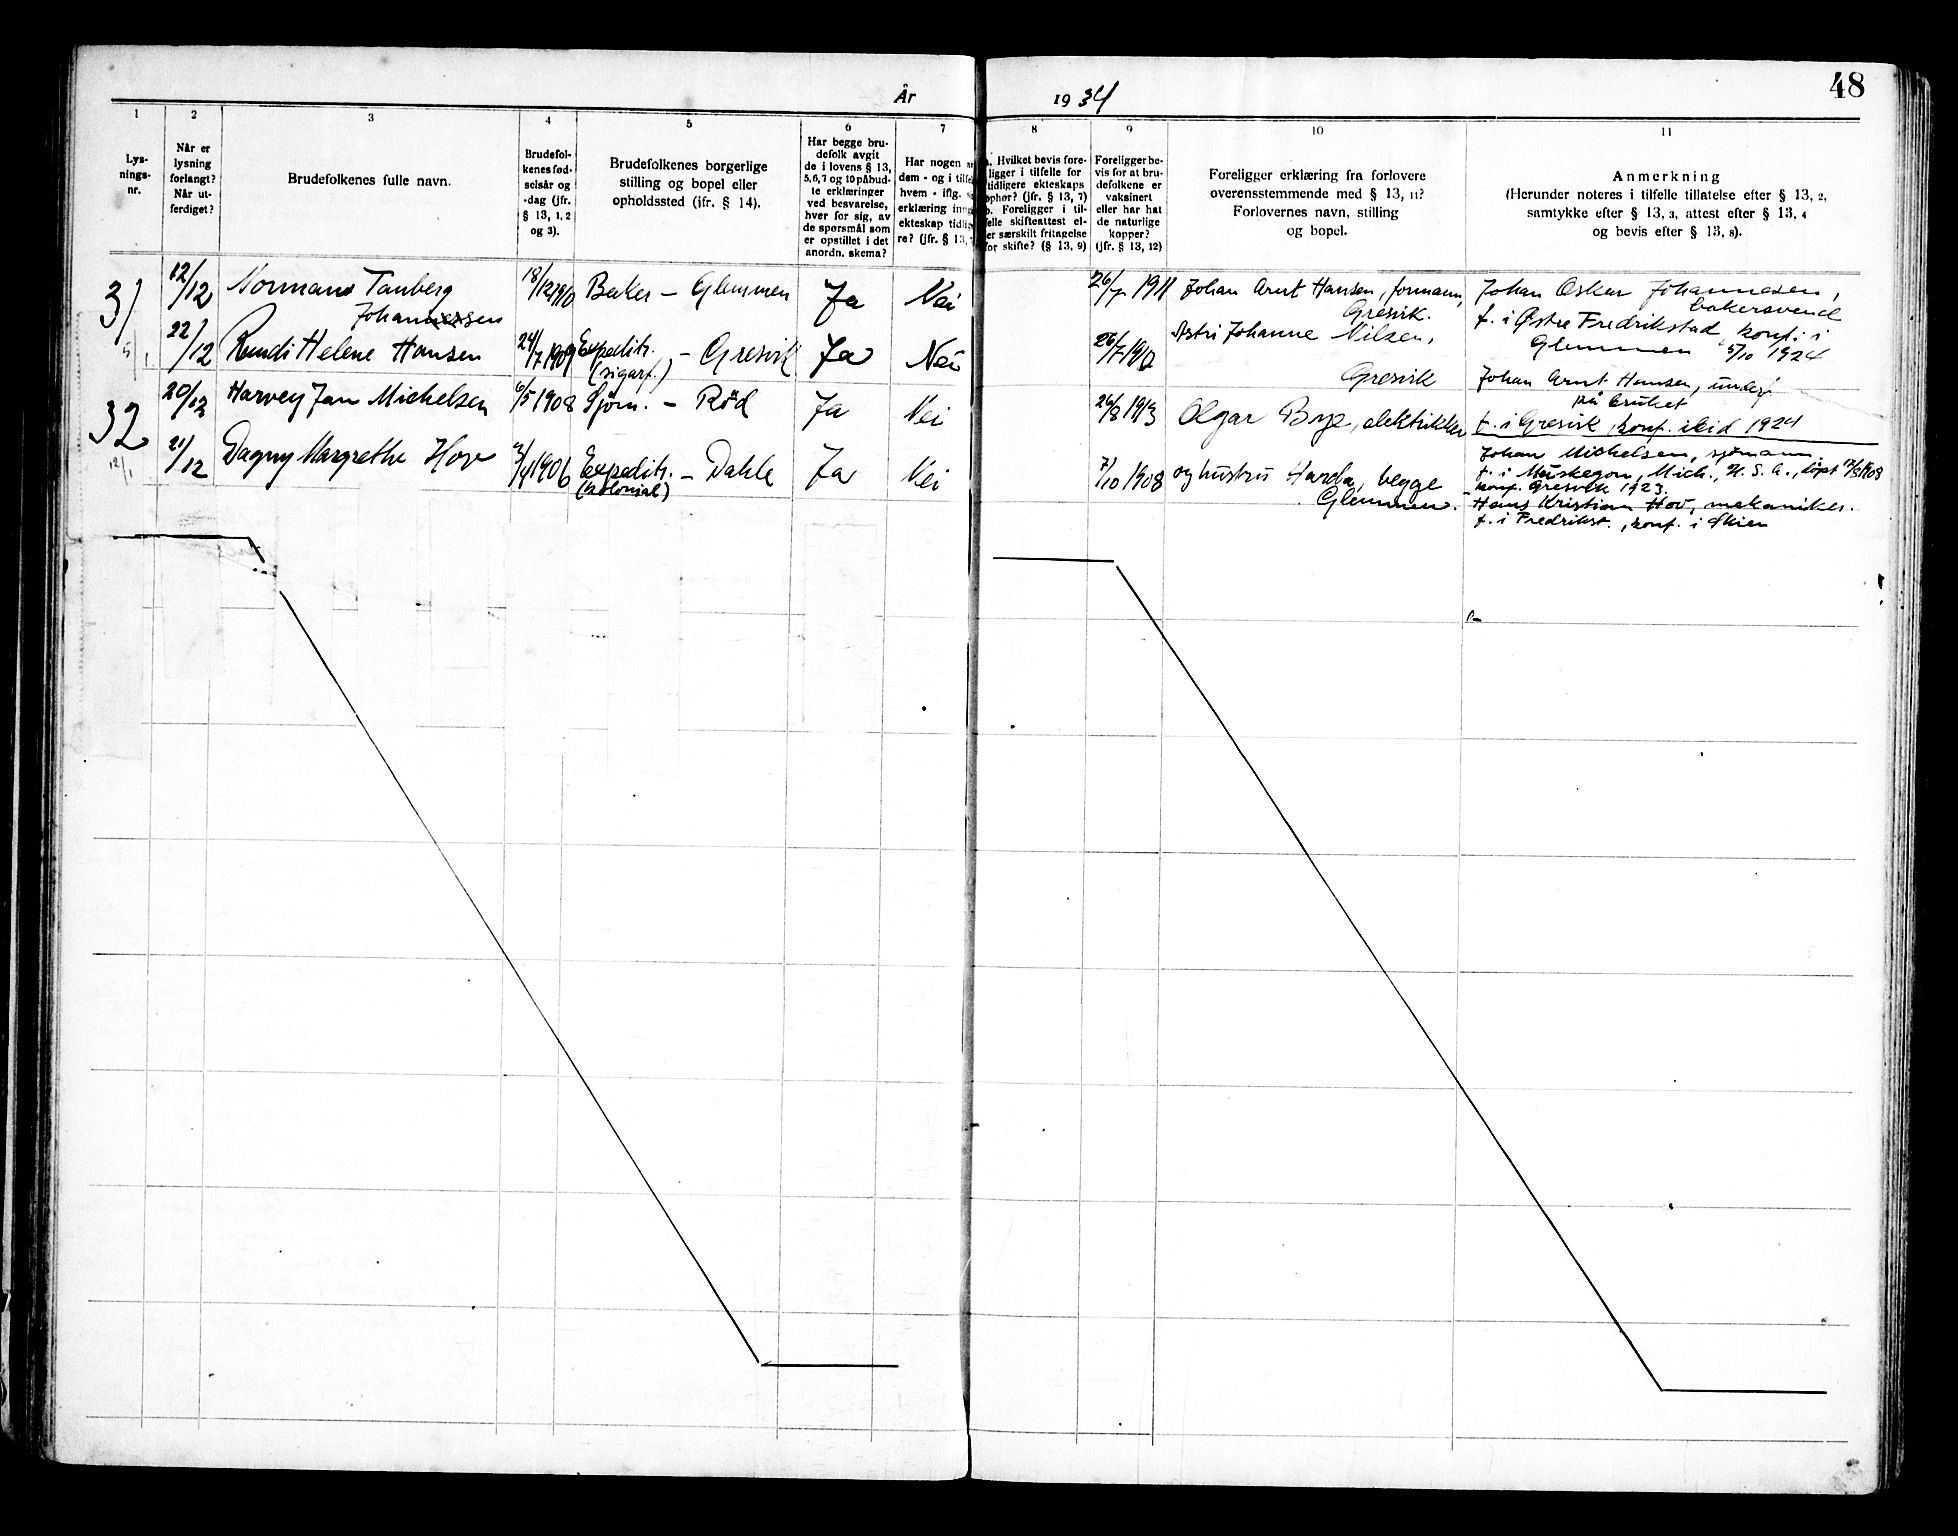 48
År 1934
1 2 3 4 5 6 7 8 9 10 11
Lys-
nings-
nr.
Når er
lysning
forlangt?
Når ut-
ferdiget?
Brudefolkenes fulle navn.
Brudefol-
kenes fød-
selsår og
-dag (jfr.
§ 13, 1, 2
og 3).
Brudefolkenes borgerlige
stilling og bopel eller
opholdssted (jfr. § 14).
Har begge bru-
defolk avgit
de i lovens § 13,
5,6,7 og 10 påbud-
te erklæringer
ved besvarelse,
hver for sig, av
de spørsmål som
er opstillet i det
anordn. skema?
Har nogen
dem - og i
hvem - iflg.
erklæring
ekteskap
re? (jfr. § 13,
Hvilket bevis fore-
ligger i tilfelle for
tidligere ekteskaps
ophør? (jfr. § 13, 7)
b. Foreligger i til-
felle skifteattest el-
er særskilt fritagelse
for skifte? (§ 13, 9)
Foreligger be-
vis for at bru-
defolkene er
vaksinert
eller har hat
de naturlige
kopper?
(jfr. § 13, 12)
Foreligger erklæring fra forlovere
overensstemmende med § 13, 11?
Forlovernes navn, stilling
og bopel.
Anmerkning
(Herunder noteres i tilfelle tillatelse efter § 13, 2,
samtykke efter § 13, 3, attest efter § 13, 4
og bevis efter § 13, 8).
31 12/12 Norman Tanberg
Johannessen
18/12 1910 Baker - Glemmen Ja Nei
26/7 1911 Johan Arnt Hansen, formann,
Gresvik.
Johan Oskar Johannesen,
bakersvend
f. i Østre Fredrikstad, konf. i
Glemmen 5/10 1924
22/12 Rundi Helene Hansen
24/7 1909 Expeditr.
(sigarf.) - Gresvik Ja Nei
Astri Johanne Nilsen,
Gresvik
Johan Arnt Hansen,
på bruket
f. i Gresvik, konf. ibid 1924
32 20/12 Harvey Jan Michelsen
6/5 1908 Sjøm. - Rød Ja Nei
26/8 1913 Olgar Bye, elektriker
Johan Michelsen, sjømann.
f. i Muskegon, Mich., U. S. A., døpt
konf. Gresvik 1923.
12/1 21/12 Dagny Margrethe Hov
1906 Expeditr.
(kolonial) - Dahle Ja Nei
7/10 1908 og hustru Harda, begge
Glemmen.
Hans Kristian Hov, mekaniker.
f. i Fredrikst., konf. i Skien